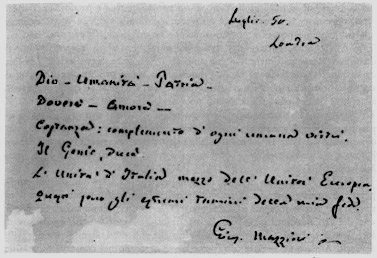 Luglio 50.
Londra
Dio – Umanità – Patria –
Dovere – Amore –
Costanza: complemento d'ogni umana virtù.
Il Genio, duce.
L'Unità d'Italia mezzo dell'Unità Europea.
Questi sono gli estremi termini della mia fede.
Gius. Mazzini